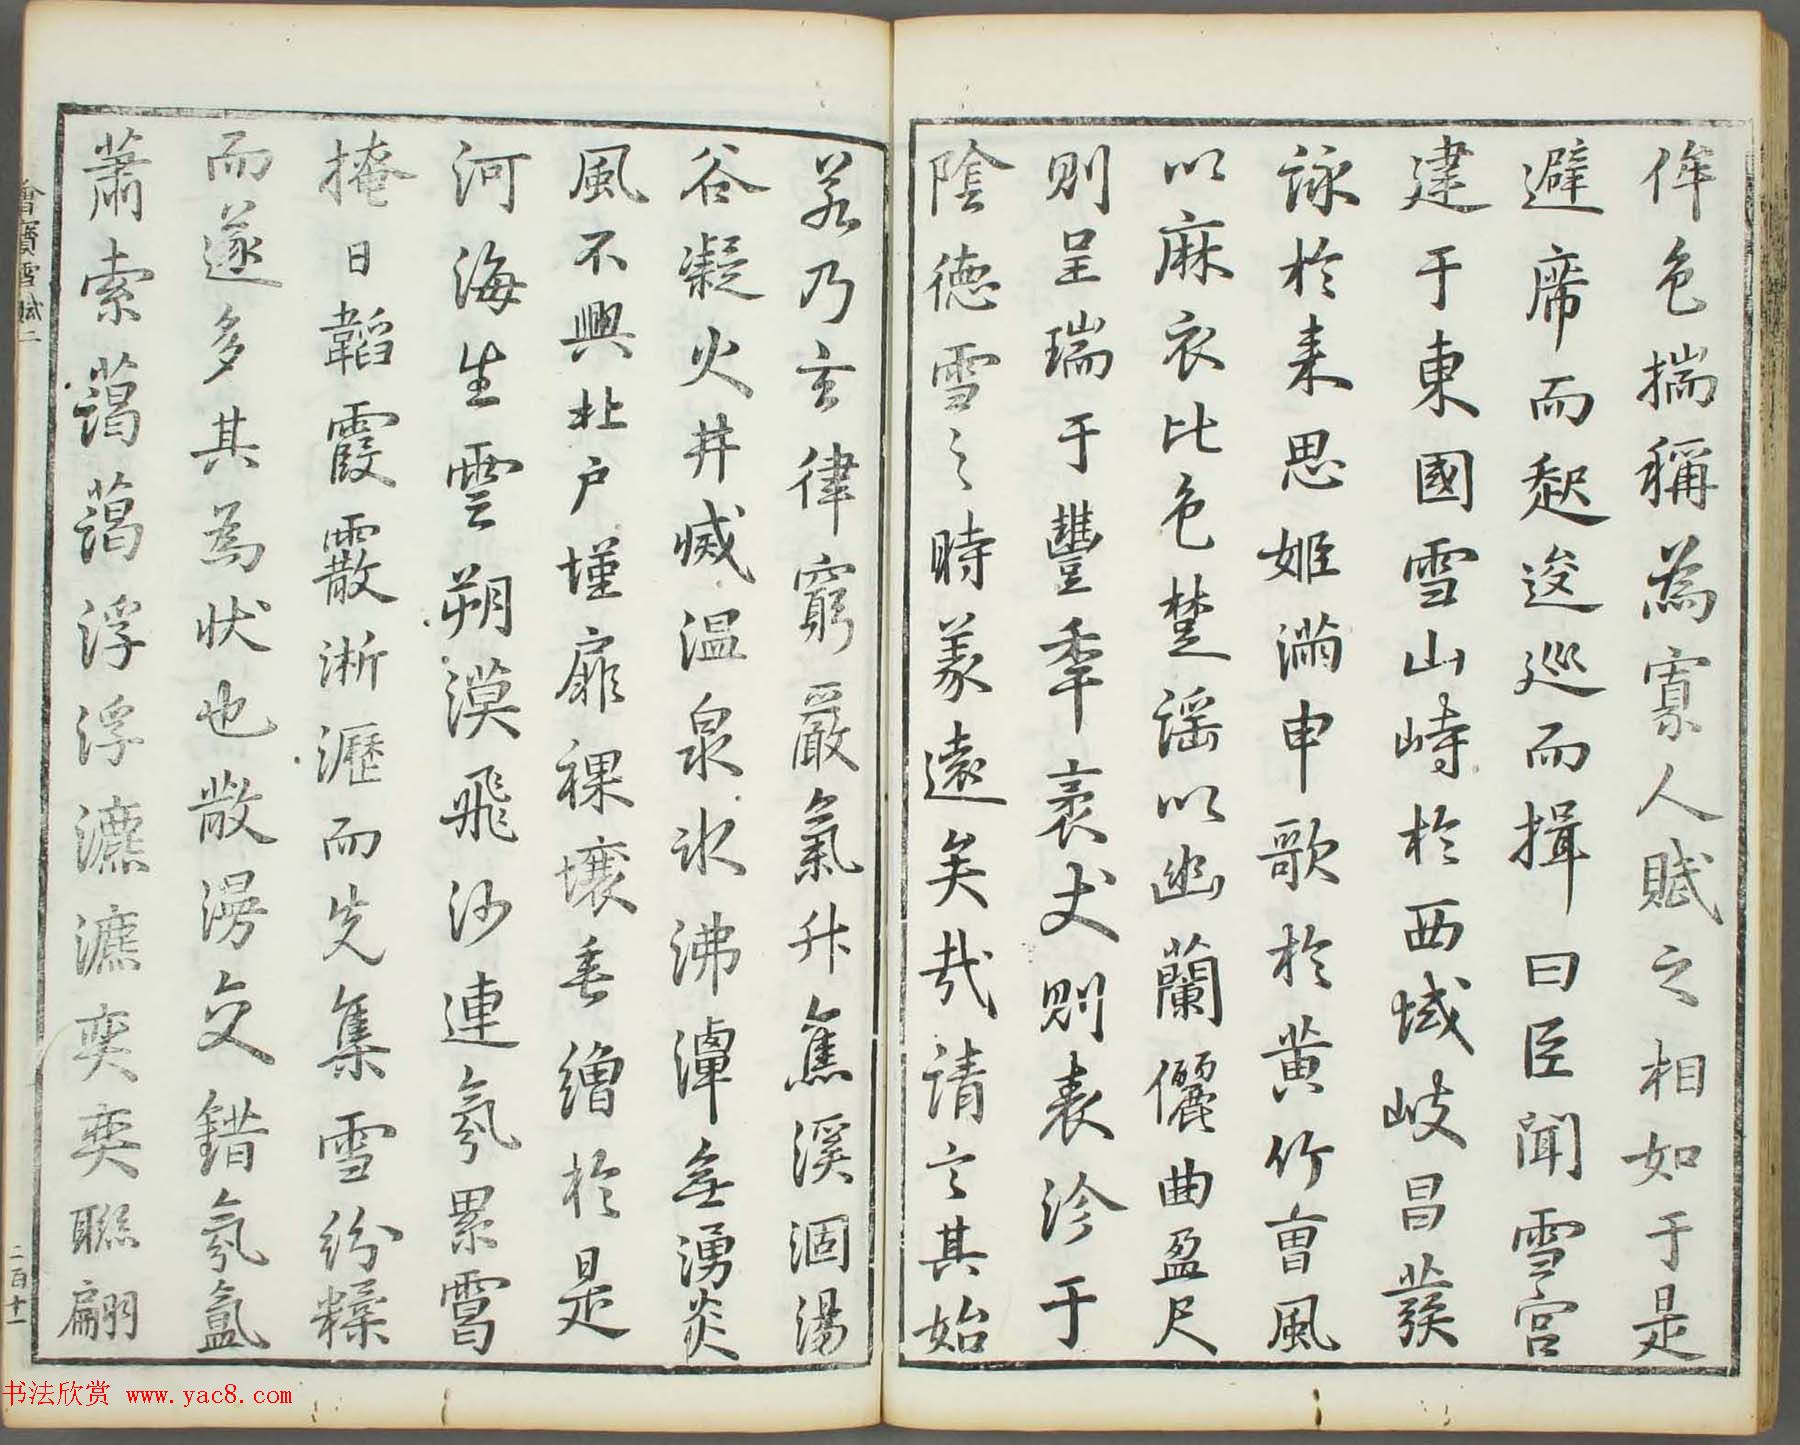 侔色揣稱為寡人賦之相如于是
避席而起逡巡而揖曰臣聞雪宮
建于東國雪山峙於西域岐昌發
詠於来思姬滿申歌於黄竹曹風
以麻衣比色楚謡以幽蘭儷曲盈尺
則呈瑞于豐年袤丈則表沴于
陰德雪之時義遠矣哉請言其始
若乃玄律窮嚴氣升焦溪涸湯
谷凝火井滅温泉氷沸潭無湧炎
風不興北户墐扉裸壤垂繒於是
河海生雲朔漠飛沙連氛累霄
掩日韜霞霰淅瀝而先集雪紛糅
而遂多其為状也散漫交錯氛氲
蕭索藹藹浮浮瀌瀌奕奕聯翩
會寶雪賦二
二百十一
书法欣赏 www.yac8.com